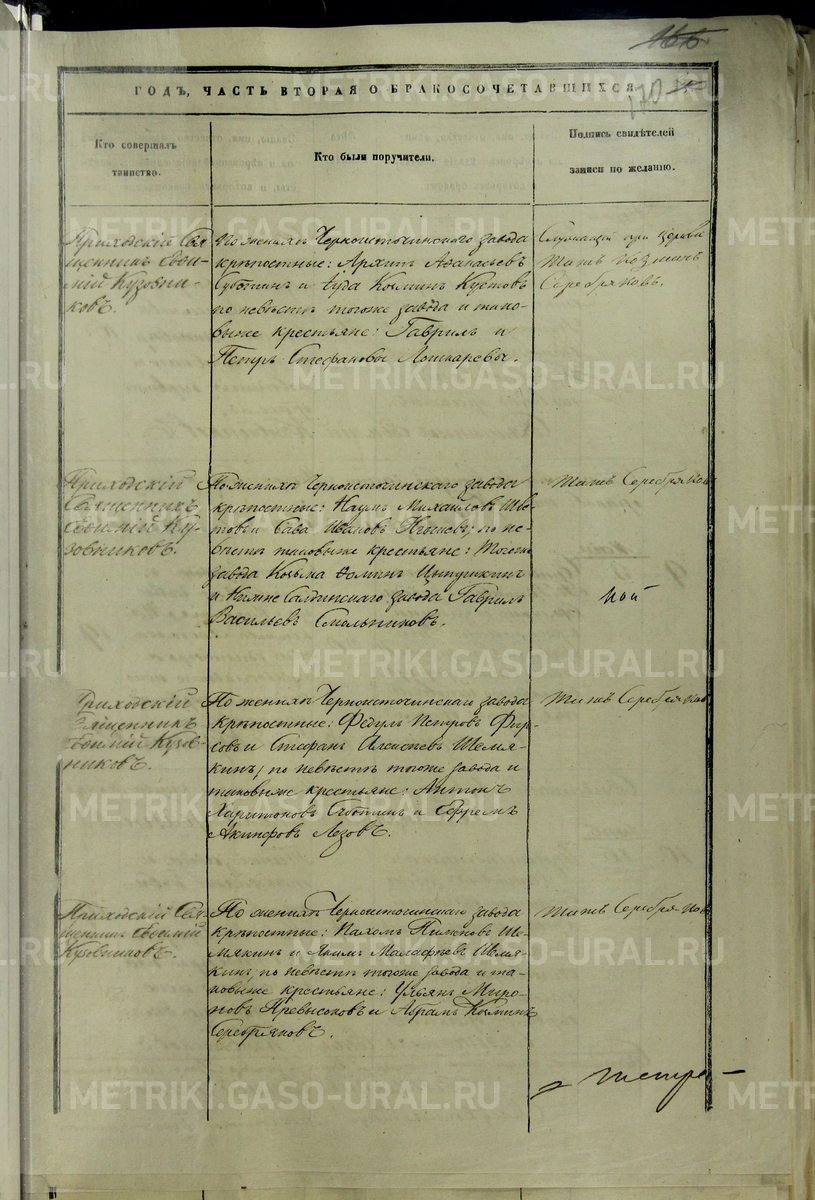 166
170
ГОДЪ, ЧАСТЬ ВТОРАЯ О БРАКОСОЧЕТАВШИХСЯ
Кто совершалъ
таинство.
Кто были поручители.
Подпись свидѣтелей
записи по желанію.
Приходскій Свя-
щенникъ Евѳи-
мій Кузовни-
ковъ.
По женихѣ Черноисточинскаго завода
крѣпостные: Архип Аѳанасьевъ
Субботинъ и Іуда Козминъ Кустовъ
по невѣстѣ тогоже завода и тако-
выеже крестьяне: Гаврилъ и
Петръ Стефановы Лошкаревы.
Служащій при церкви
Серебряковъ.
Приходскій
Священникъ
Евѳимій Ку-
зовниковъ.
По женихѣ Черноисточинскаго завода
крѣпостные: Наумъ Михайловъ Шве-
цовъ и Сава Ивановъ ; по не-
вѣстѣ таковыеже крестьяне: Тогоже
завода Козьма Ѳоминъ Ципушкинъ
и Нижне Салдинскаго завода Гаврилъ
Васильевъ Смольниковъ.
Серебряков
Приходскій
Священникъ
Евѳимій Кузов-
никовъ.
По женихѣ Черноисточинскаго завода
крѣпостные: Ѳедулъ Петровъ Фир-
совъ и Стефанъ Алексѣевъ Шемя-
кинъ; по невѣстѣ тогоже завода и
таковыеже крестьяне: Антонъ
Харитоновъ Субботинъ и Ефремъ
Акинфовъ Лезовъ.
Серебряков
Приходскій Свя-
щенникъ Евѳимій
Кузовниковъ.
По женихѣ Черноисточинскаго завода
крѣпостные: Пахомъ Пименовъ Ше-
мякинъ и Якимъ Малафѣевъ Шемя-
кинъ; по невѣстѣ тогоже завода и та-
ковыеже крестьяне: Ульянъ Миро-
новъ Превысоковъ и Абрамъ Козминъ
Серебряковъ.
Серебряков
METRIKI.GASO-URAL.RU